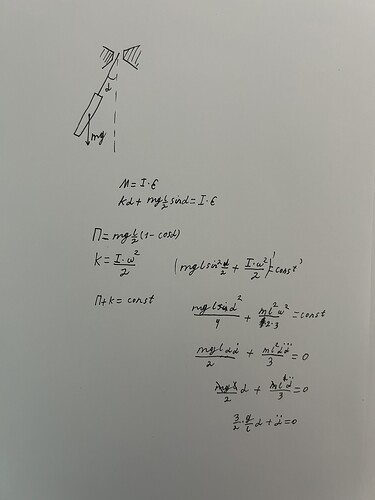 α
mg
M = I·ε
kα + mg l/2 sinα = I·ε
П = mg l/2 (1 - cosα)
K = I·ω²/2
(mgl sin² α/2 + I·ω²/2)' = const'
П + K = const
mgl α²/4 + ml²ω²/2·3 = const
mgl α α̇/2 + ml² α̇ α̈/3 = 0
mgl/2 α + ml² α̈/3 = 0
3/2 · g/l α + α̈ = 0